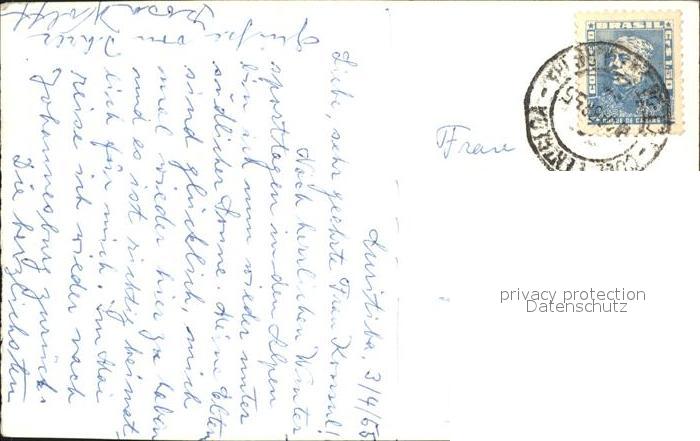 Curitiba, 3/4/65
Liebe, sehr geehrte Frau Konsul!
Nach herrlichen Winter
sporttagen in den Alpen
bin ich nun wieder unter
südlicher Sonne. Meine Eltern
sind glücklich, mich
mal wieder hier zu haben
und es ist richtig heimat-
lich für mich. Im Mai
reise ich wieder nach
Johannesburg zurück.
Die herzlichsten
Ihrer
Frau
BRASIL
CORREIO
DUQUE DE CAXIAS
privacy protection
Datenschutz